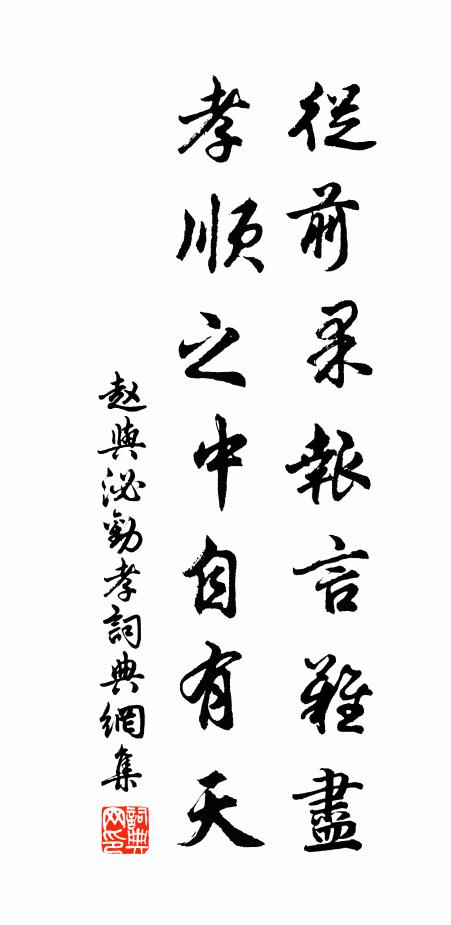 從前果報言難盡
孝順之中自有天
赵與泌勸孝詞典網集
詞典
网印